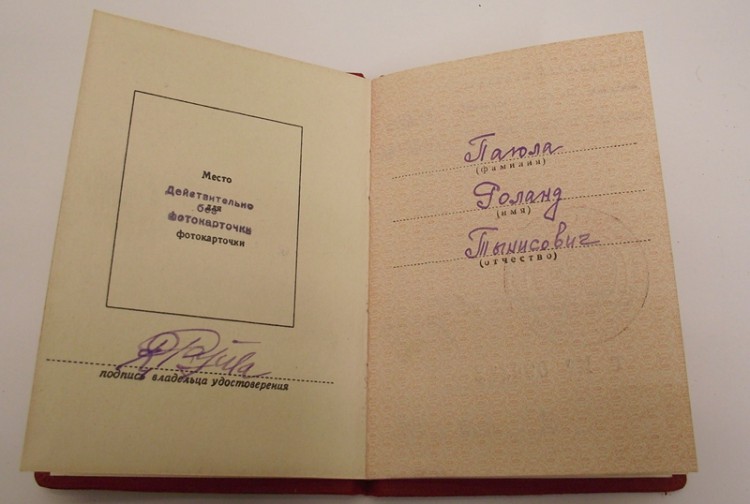 Место
Действительно
для
без
фотокарточки
фотокарточки
подпись владельца удостоверения
Паюла
(фамилия)
Роланд
(имя)
Тынисович
(отчество)